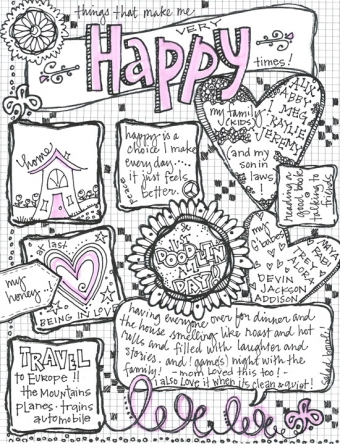 things that make me
VERY
HAPPY
times!
my family
(KIDS)
ALIX
ABBY
I MEG
KAYLIE
JEREMY
(and my
son in
laws)
!
home
happy is a
choice I make
every day....
it just feels
better.
peace
reading a
good book
talking to
friends
at last
my
honey..!
BEING IN LOVE
&
DOODLIN
ALL
DAY!
my
G'babies
MAYA
FABI
TREY
ALORA
DEVIN
JACKSON
ADDISON
TRAVEL
to EUROPE !!
the MOUNTAINS
planes · trains
automobile
having everyone over for dinner and
the house smelling like roast and hot
rolls and filled with laughter and
stories. and! games) night with the
family! - mom loved this too! -
i also love it when its clean & quiet!